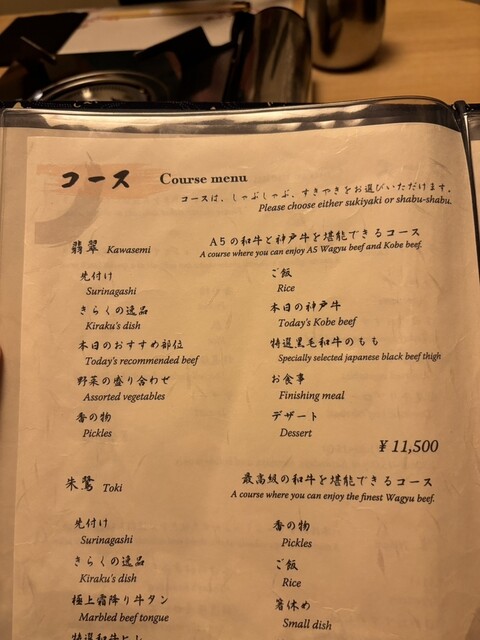 コース Course menu
コースは、しゃぶしゃぶ、すきやきをお選びいただけます。
Please choose either sukiyaki or shabu-shabu.
翡翠 Kawasemi
A5の和牛と神戸牛を堪能できるコース
A course where you can enjoy A5 Wagyu beef and Kobe beef.
先付け
Surinagashi
きらくの逸品
Kiraku's dish
本日のおすすめ部位
Today's recommended beef
野菜の盛り合わせ
Assorted vegetables
香の物
Pickles
ご飯
Rice
本日の神戸牛
Today's Kobe beef
特選黒毛和牛のもも
Specially selected japanese black beef thigh
お食事
Finishing meal
デザート
Dessert
¥ 11,500
朱鷺 Toki
最高級の和牛を堪能できるコース
A course where you can enjoy the finest Wagyu beef.
先付け
Surinagashi
きらくの逸品
Kiraku's dish
極上霜降り牛タン
Marbled beef tongue
特選和牛ヒレ
香の物
Pickles
ご飯
Rice
箸休め
Small dish